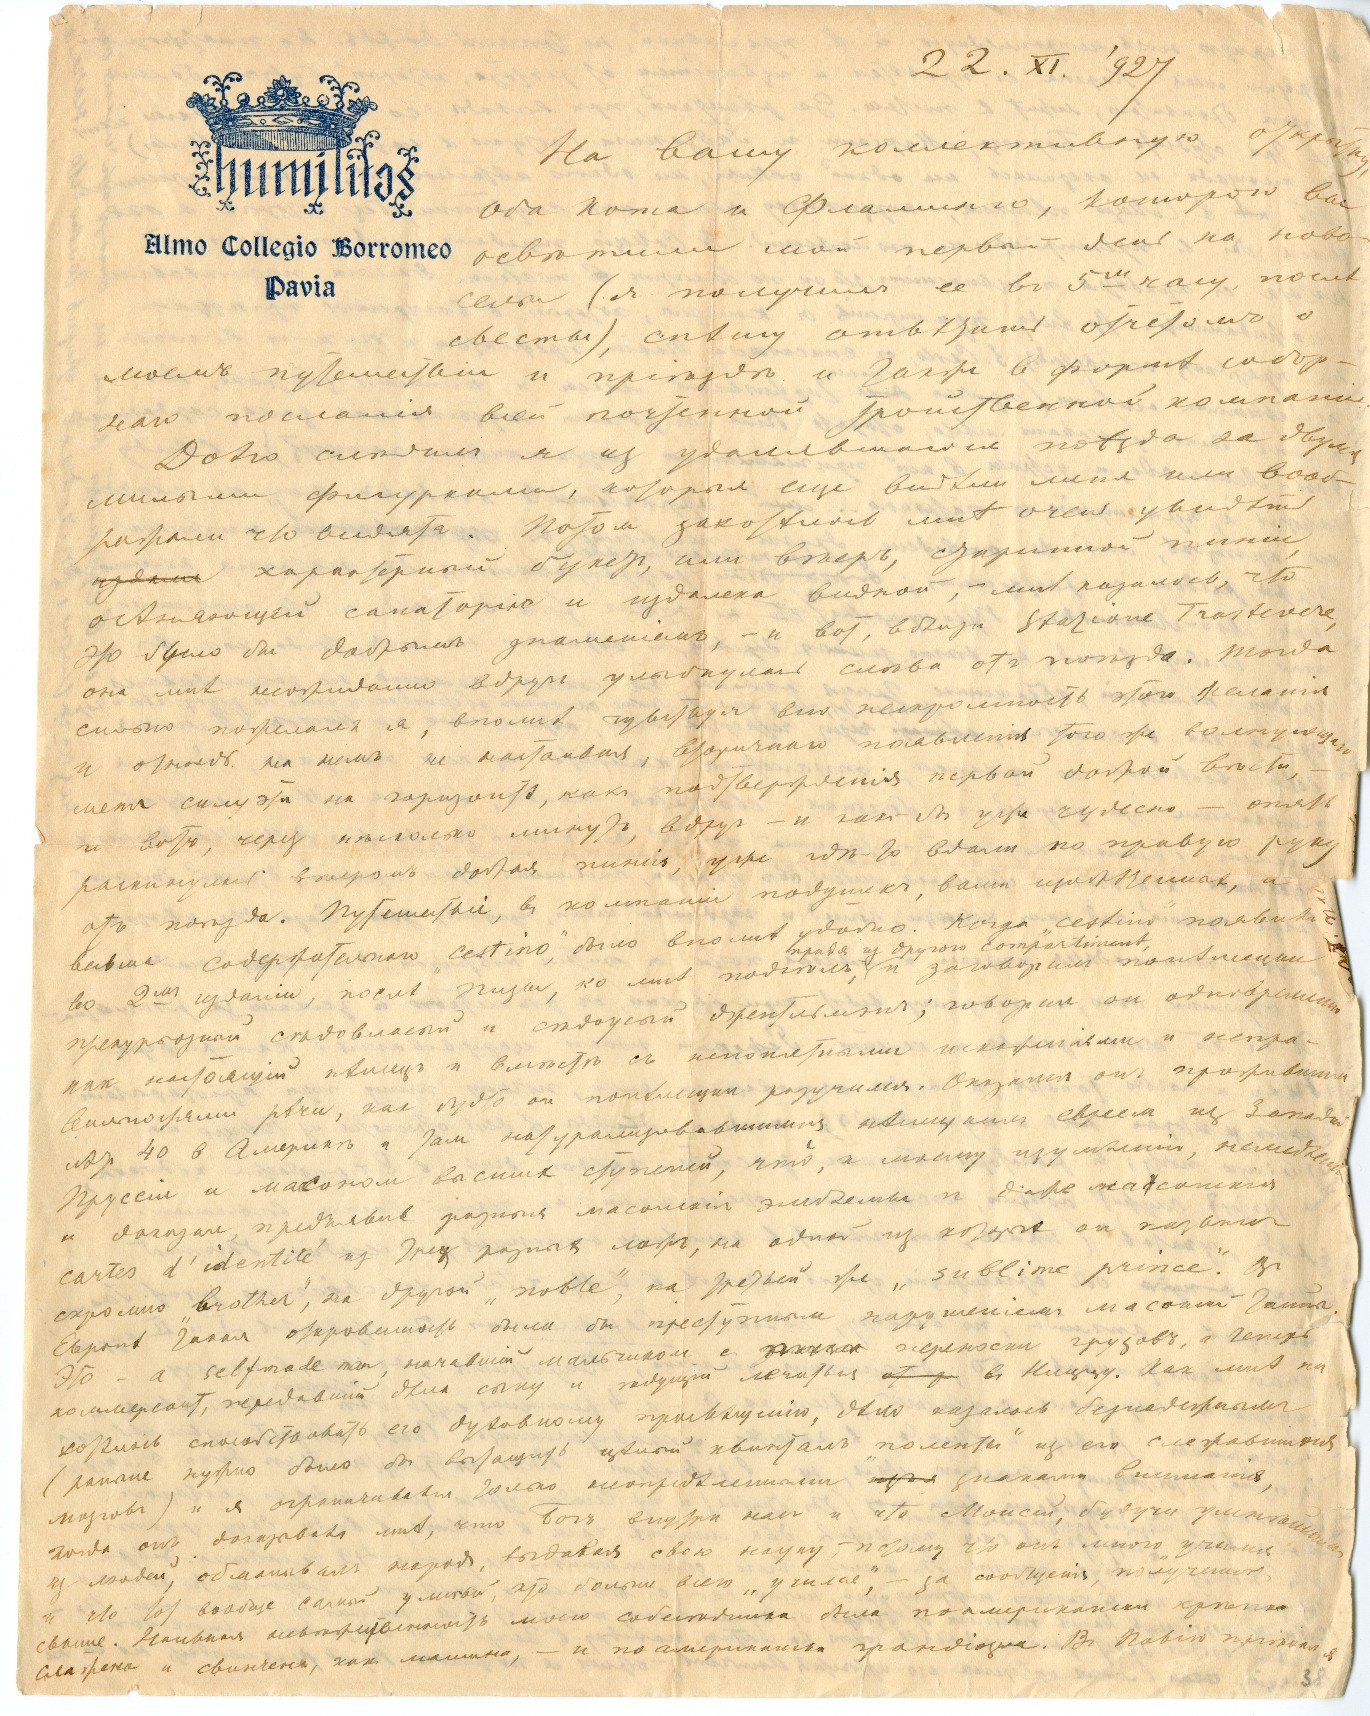 22. XI. '927
humilitas
Almo Collegio Borromeo
Pavia
На вашу коллективную открытку,
оба кота и Фламинго, которою вы
освѣтили мой первый день на ново-
сельи (я получилъ ее въ 5мъ часу, послѣ
сіесты), спѣшу отвѣтить отчетомъ о
моемъ путешествіи и пріѣздѣ и также в формѣ собор-
наго посланія всей почтенной тройственной компаніи.
Долго слѣдилъ я из удалявшагося поѣзда за двумя
милыми фигурками, которыя еще видѣли меня или вооб-
ражали что видятъ. Потом захотѣлось мнѣ очень увидѣть
характерный букетъ, или вѣеръ, старинной пиніи,
осѣняющей санаторію и издалека видной, – мнѣ казалось, что
это было бы добрымъ знаменіемъ, – и вот, вблизи Stazione Trastevere,
она мнѣ неожиданно вдругъ улыбнулась слѣва отъ поѣзда. Тогда
сильно пожелалъ я, вполнѣ чувствуя всю нескромность этого желанія
и отнюдь на немъ не настаивая, вторичнаго появленія того же волнующаго
меня силуэта на горизонтѣ, какъ подтвержденія первой доброй вѣсти, –
и вотъ, через нѣсколько минутъ, вдругъ – и какъ бы уже чудесно – опять
раскинулась вѣеромъ добрая пинія, уже гдѣ-то вдали по правую руку
отъ поѣзда. Путешествіе, въ компаніи подушекъ, ваши , и
весьма содержательнаго "cestino", было вполнѣ удобно. Когда "cestino" появился
во 2мъ изданіи, послѣ Пизы, ко мнѣ подсѣлъ, придя из другого compartiment, и заговорилъ понѣмецки
прекурьозный сѣдовласый и сѣдоусый джентльменъ; говорилъ он одновременно
как настоящій нѣмецъ и вмѣстѣ съ непонятными искаженіями и непра-
вильностями рѣчи, как будто он понѣмецки разучился. Оказался онъ прожившим
лѣт 40 в Америкѣ и там натурализовавшимся нѣмецкимъ евреем из Западной
Пруссіи и масоном высшихъ ступеней, чтò, к моему изумленію, немедленно
и доказал, предъявив разныя масонскія эмблемы и даже масонскія
cartes d'identité из трех разныхъ ложъ, на одной из которыхъ он названъ
скромно "brother", на другой "noble", на третьей же "sublime prince". Въ
Европѣ такая откровенность была бы преступнымъ нарушеніемъ масонской тайны.
Это – a selfmade man, начавшій мальчиком с переноски грузовъ, а теперь
коммерсантъ, передавшій дѣла сыну и ѣдущій лечиться въ Ниццу. Как мнѣ ни
хотѣлось способствовать его духовному просвѣщенію, дѣло казалось безнадежнымъ
(раньше нужно было бы вытащить цѣлый квинталъ "поленты" из его слежавшихся
мозговъ) и я ограничивался только неопредѣленными знаками вниманія,
когда онъ доказывалъ мнѣ, что Богъ внутри насъ и что Моисей, будучи умнѣйшимъ
из людей, обманывалъ народъ, выдавая свою науку, – потому что онъ много учился
и что тот вообще самый умный, кто больше всего "училсе", – за сообщенія, полученныя
свыше. Наивная невѣжественность моего собесѣдника была поамерикански крѣпко
слажена и свинчена, как машина, – и поамерикански грандіозна. Въ Павію пріѣхалъ я
38